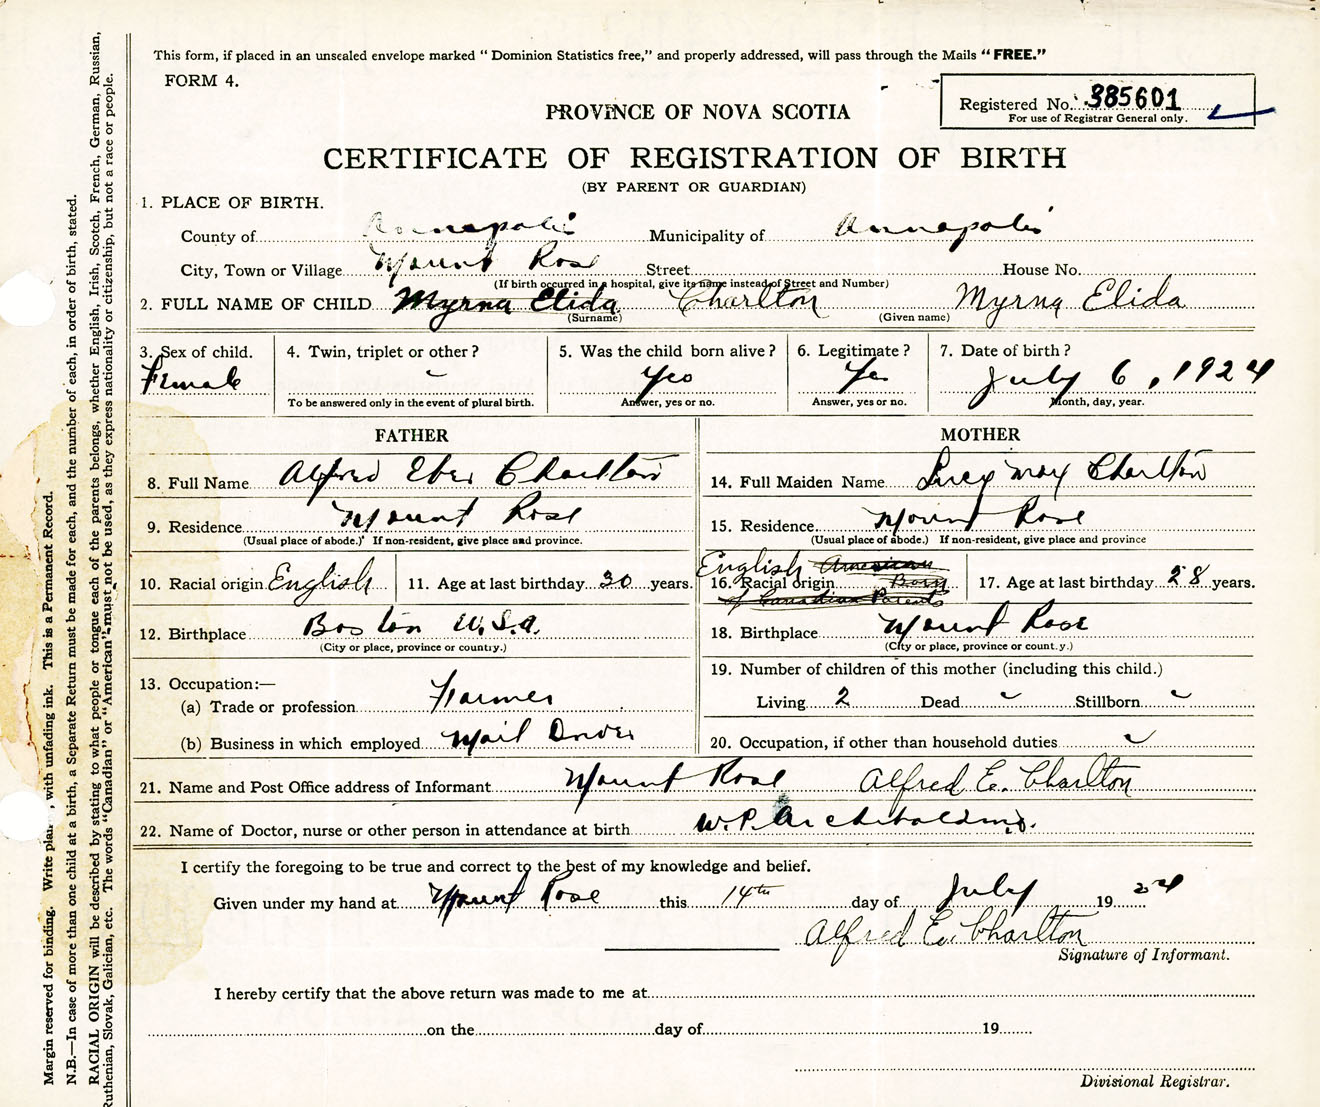 This form, if placed in an unsealed envelope marked "Dominion Statistics free," and properly addressed, will pass through the Mails "FREE."
FORM 4.
Registered No. 385601
For use of Registrar General only.
PROVINCE OF NOVA SCOTIA
CERTIFICATE OF REGISTRATION OF BIRTH
(BY PARENT OR GUARDIAN)
1. PLACE OF BIRTH.
County of Annapolis Municipality of Annapolis
City, Town or Village Mount Rose Street House No.
(If birth occurred in a hospital, give its name instead of Street and Number)
2. FULL NAME OF CHILD Myrna Elida Charlton Myrna Elida
(Surname) (Given name)
3. Sex of child. 4. Twin, triplet or other? 5. Was the child born alive? 6. Legitimate? 7. Date of birth?
Female Yes Yes July 6, 1924
To be answered only in the event of plural birth. Answer, yes or no. Answer, yes or no. Month, day, year.
FATHER MOTHER
8. Full Name Alfred Eber Charlton 14. Full Maiden Name Lucy May Charlton
9. Residence Mount Rose 15. Residence Mount Rose
(Usual place of abode.) If non-resident, give place and province. (Usual place of abode.) If non-resident, give place and province
English American
10. Racial origin English 11. Age at last birthday 30 years. 16. Racial origin Born 17. Age at last birthday 28 years.
of Canadian Parents
12. Birthplace Boston U.S.A. 18. Birthplace Mount Rose
(City or place, province or country.) (City or place, province or count.y.)
13. Occupation:— 19. Number of children of this mother (including this child.)
(a) Trade or profession Farmer Living 2 Dead Stillborn
(b) Business in which employed Mail Driver 20. Occupation, if other than household duties
21. Name and Post Office address of Informant Mount Rose Alfred E. Charlton
22. Name of Doctor, nurse or other person in attendance at birth W.P. Archibald M.D.
I certify the foregoing to be true and correct to the best of my knowledge and belief.
Given under my hand at Mount Rose this 14th day of July 1924
Alfred E. Charlton
Signature of Informant.
I hereby certify that the above return was made to me at
on the day of 19
Divisional Registrar.
Margin reserved for binding. Write plain, with unfading ink. This is a Permanent Record.
N.B.—In case of more than one child at a birth, a Separate Return must be made for each, and the number of each, in order of birth, stated.
RACIAL ORIGIN will be described by stating to what people or tongue each of the parents belongs, whether English, Irish, Scotch, French, German, Russian,
Ruthenian, Slovak, Galician, etc. The words "Canadian" or "American" must not be used, as they express nationality or citizenship, but not a race or people.